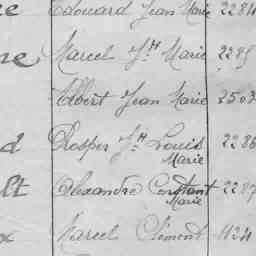 Edouard Jean Marie 2284
Marcel Jh Marie 2285
Albert Jean Marie 2503
d Prosper Jh Louis Marie 2286
lt Alexandre Constant Marie 2287
x Marcel Clément 1124